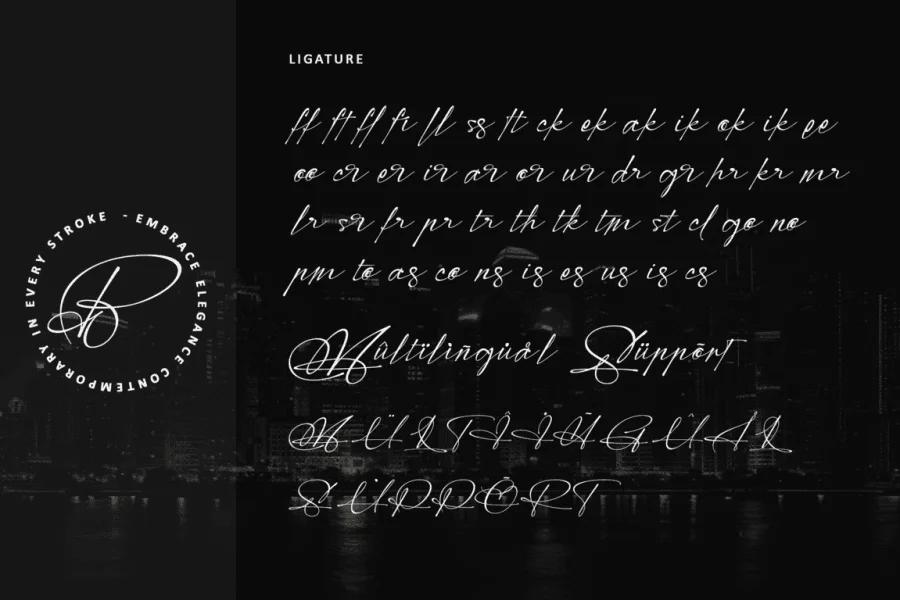 EMBRACE ELEGANCE CONTEMPORARY IN EVERY STROKE -
B
LIGATURE
ff ft fl fi ll ss tt ck ek ak ik ok ik ee
oo cr er ir ar or ur dr gr hr kr mr
lr sr fr pr tr th tk tm st cl go no
pm to as co ns is es us is cs
Mûltïlìñgùål Süppõrt
SÜPPÕRT